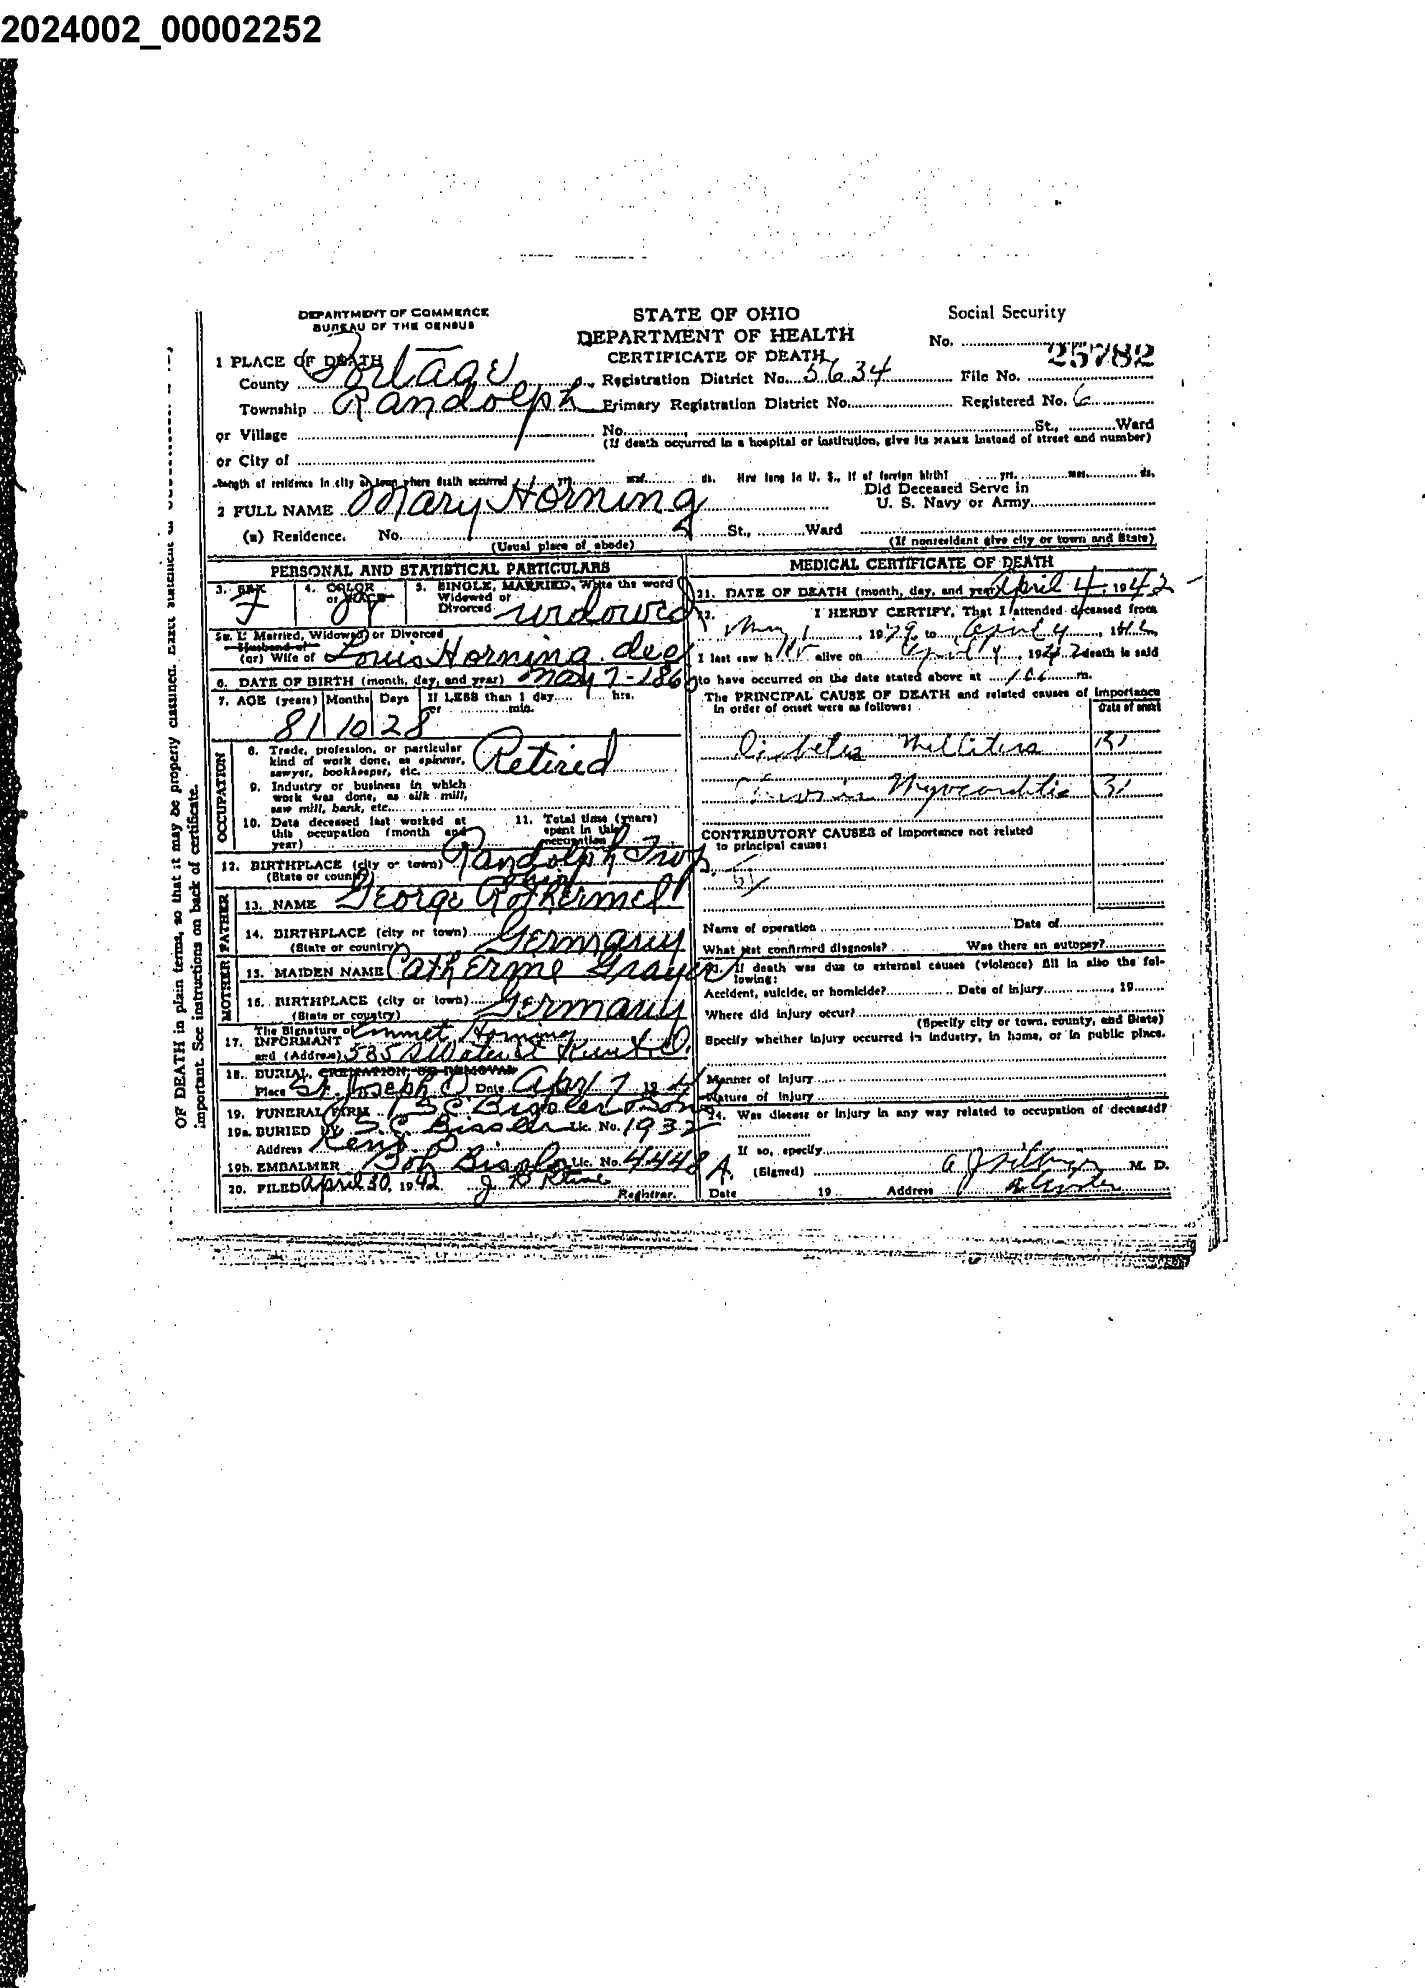 2024002_00002252
DEPARTMENT OF COMMERCE
BUREAU OF THE CENSUS
STATE OF OHIO
DEPARTMENT OF HEALTH
CERTIFICATE OF DEATH
Social Security
No.
25782
1 PLACE OF DEATH
County Portage Registration District No. 5634 File No.
Township Randolph Primary Registration District No. Registered No. 6
or Village No. St., Ward
(If death occurred in a hospital or institution, give its NAME instead of street and number)
or City of
Length of residence in city or town where death occurred yrs. mos. ds. How long in U. S., if of foreign birth? yrs. mos. ds.
2 FULL NAME Mary Horning
Did Deceased Serve in
U. S. Navy or Army
(a) Residence. No. St., Ward
(Usual place of abode) (If nonresident give city or town and State)
PERSONAL AND STATISTICAL PARTICULARS
3. SEX F
4. COLOR or RACE W
5. SINGLE, MARRIED, Write the word
Widowed or
Divorced widowed
5a. If Married, Widowed or Divorced
Husband of
(or) Wife of Louis Horning dec
6. DATE OF BIRTH (month, day, and year) May 7-186
7. AGE (years) Months Days If LESS than 1 day hrs.
or min.
81 10 28
OCCUPATION
8. Trade, profession, or particular
kind of work done, as spinner,
sawyer, bookkeeper, etc. Retired
9. Industry or business in which
work was done, as silk mill,
saw mill, bank, etc.
10. Date deceased last worked at
this occupation (month and
year)
11. Total time (years)
spent in this
occupation
12. BIRTHPLACE (city or town) Randolph Twp
(State or country) Ohio
FATHER
13. NAME George Rothermel
14. BIRTHPLACE (city or town) Germany
(State or country)
MOTHER
15. MAIDEN NAME Catherine Grayer
16. BIRTHPLACE (city or town) Germany
(State or country)
The Signature of Emmet Horning
17. INFORMANT
and (Address) 535 S Water St Kent O.
18. BURIAL, CREMATION, OR REMOVAL
Place St. Joseph O Date Apr 7 19 42
19. FUNERAL FIRM S C Bissler & Son
19a. BURIED BY S. C. Bissler Lic. No. 1932
Address Kent O
19b. EMBALMER Bob Bissler Lic. No. 4448 A.
20. FILED April 30, 1942 Registrar.
MEDICAL CERTIFICATE OF DEATH
21. DATE OF DEATH (month, day, and year) April 4, 1942
22. I HERBY CERTIFY, That I attended deceased from
May 1, 1929, to April 4, 1942
I last saw her alive on April 4, 1942 death is said
to have occurred on the date stated above at m.
The PRINCIPAL CAUSE OF DEATH and related causes of importance
in order of onset were as follows:
Date of onset
Diabetes Mellitus 31
Chronic Myocarditis 31
CONTRIBUTORY CAUSES of importance not related
to principal cause:
Name of operation Date of
What test confirmed diagnosis? Was there an autopsy?
23. If death was due to external causes (violence) fill in also the fol-
lowing:
Accident, suicide, or homicide? Date of Injury 19
Where did injury occur?
(Specify city or town, county, and State)
Specify whether injury occurred in industry, in home, or in public place.
Manner of Injury
Nature of Injury
24. Was disease or injury in any way related to occupation of deceased?
If so, specify
(Signed) M. D.
Date 19 Address
OF DEATH in plain terms, so that it may be properly classified. Exact statement of
important. See instructions on back of certificate.